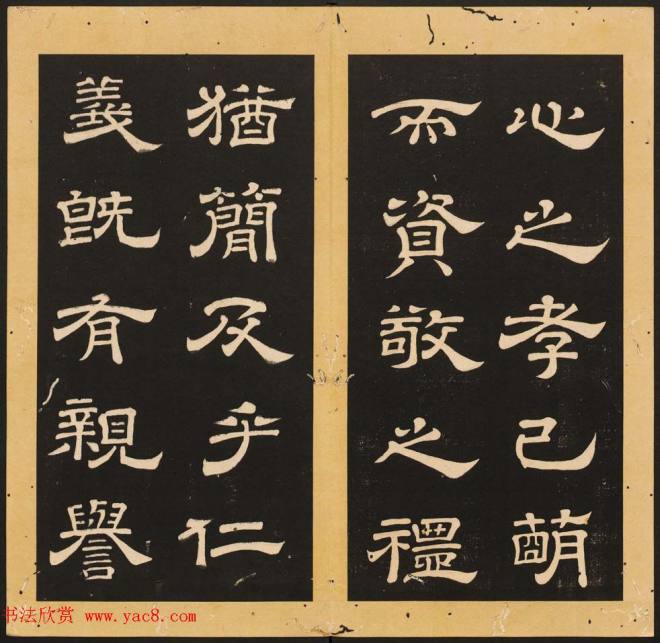 心之孝已萌
而資敬之禮
猶簡及乎仁
義既有親譽
书法欣赏 www.yac8.com